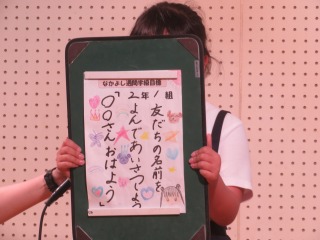 なかよし週間学級目標
2年1組
友だちの名前を
よんであいさつしよう
「〇〇さんおはよう」